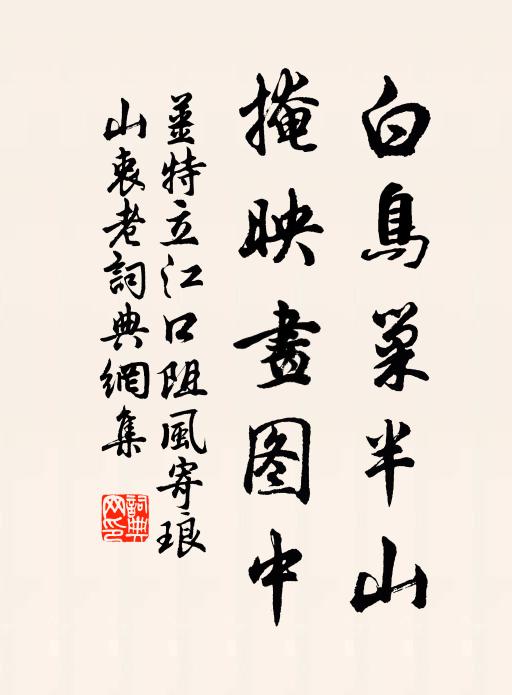 白鳥巢半山
掩映畫图中
姜特立江口阻風寄琅
山衷老詞典網集
詞典網印